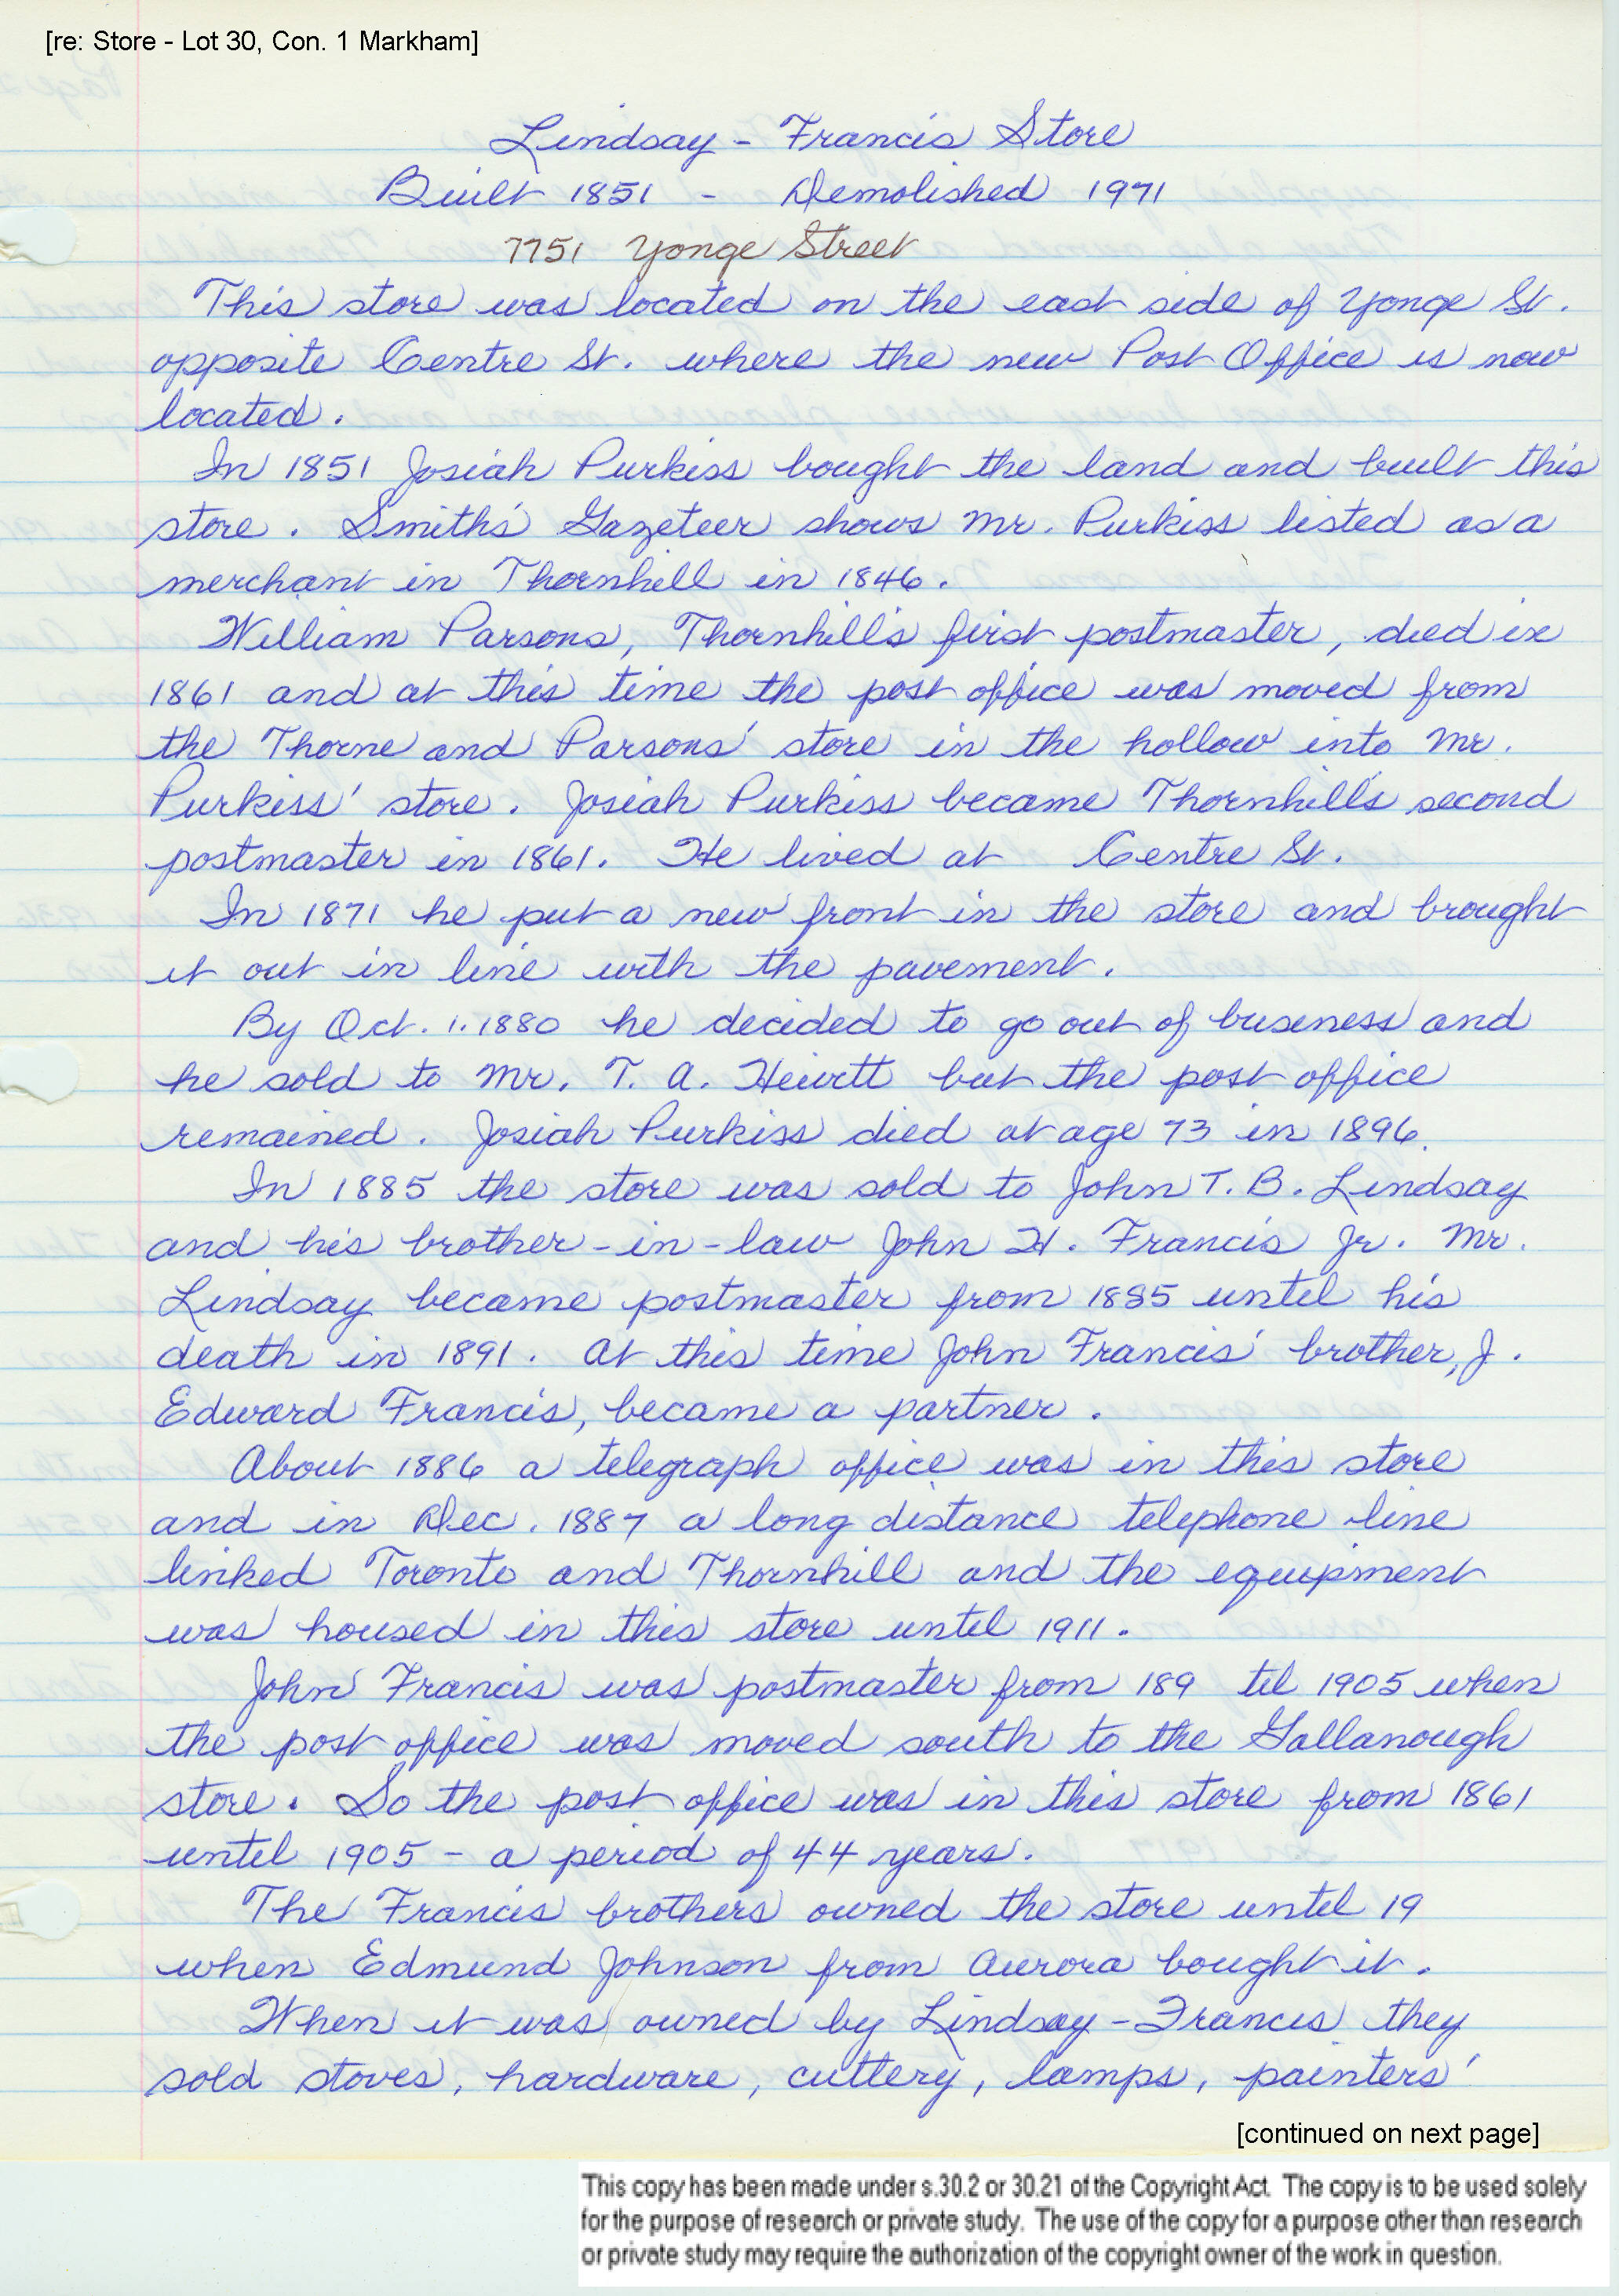 [re: Store - Lot 30, Con. 1 Markham]
Lindsay - Francis Store
Built 1851 - Demolished 1971
7751 Yonge Street
This store was located on the east side of Yonge St.
opposite Centre St. where the new Post Office is now
located.
In 1851 Josiah Purkiss bought the land and built this
store. Smith's Gazeteer shows Mr. Purkiss listed as a
merchant in Thornhill in 1846.
William Parsons, Thornhill's first postmaster, died in
1861 and at this time the post office was moved from
the Thorne and Parsons' store in the hollow into Mr.
Purkiss' store. Josiah Purkiss became Thornhill's second
postmaster in 1861. He lived at Centre St.
In 1871 he put a new front in the store and brought
it out in line with the pavement.
By Oct. 1. 1880 he decided to go out of business and
he sold to Mr. T. A. Hewitt but the post office
remained. Josiah Purkiss died at age 73 in 1896.
In 1885 the store was sold to John T. B. Lindsay
and his brother-in-law John H. Francis Jr. Mr.
Lindsay became postmaster from 1885 until his
death in 1891. At this time John Francis' brother, J.
Edward Francis, became a partner.
About 1886 a telegraph office was in this store
and in Dec. 1887 a long distance telephone line
linked Toronto and Thornhill and the equipment
was housed in this store until 1911.
John Francis was postmaster from 189 til 1905 when
the post office was moved south to the Gallanough
store. So the post office was in this store from 1861
until 1905 - a period of 44 years.
The Francis brothers owned the store until 19
when Edmund Johnson from Aurora bought it.
When it was owned by Lindsay-Francis they
sold stoves, hardware, cuttery, lamps, painters'
[continued on next page]
This copy has been made under s.30.2 or 30.21 of the Copyright Act. The copy is to be used solely
for the purpose of research or private study. The use of the copy for a purpose other than research
or private study may require the authorization of the copyright owner of the work in question.